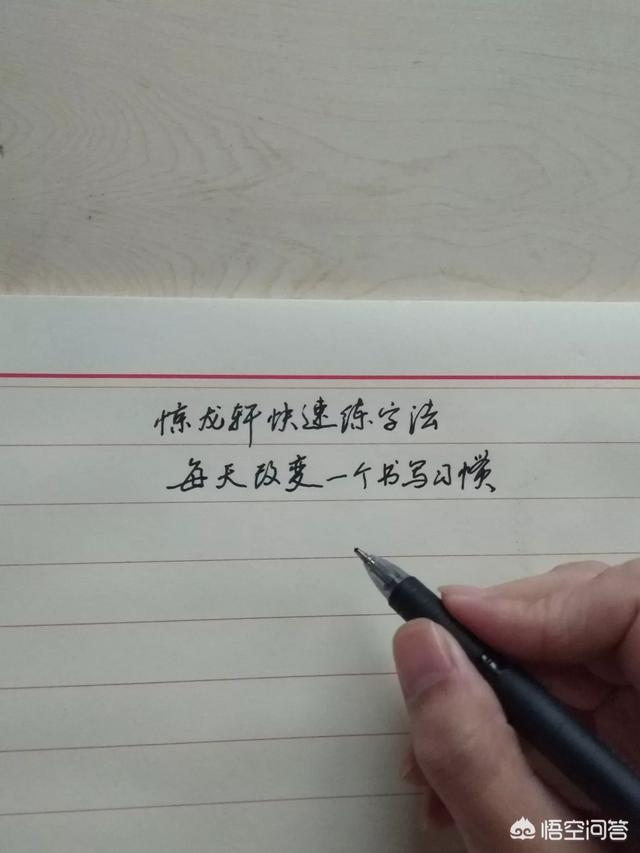 惊龙轩快速练字法
每天改变一个书写习惯
悟空问答